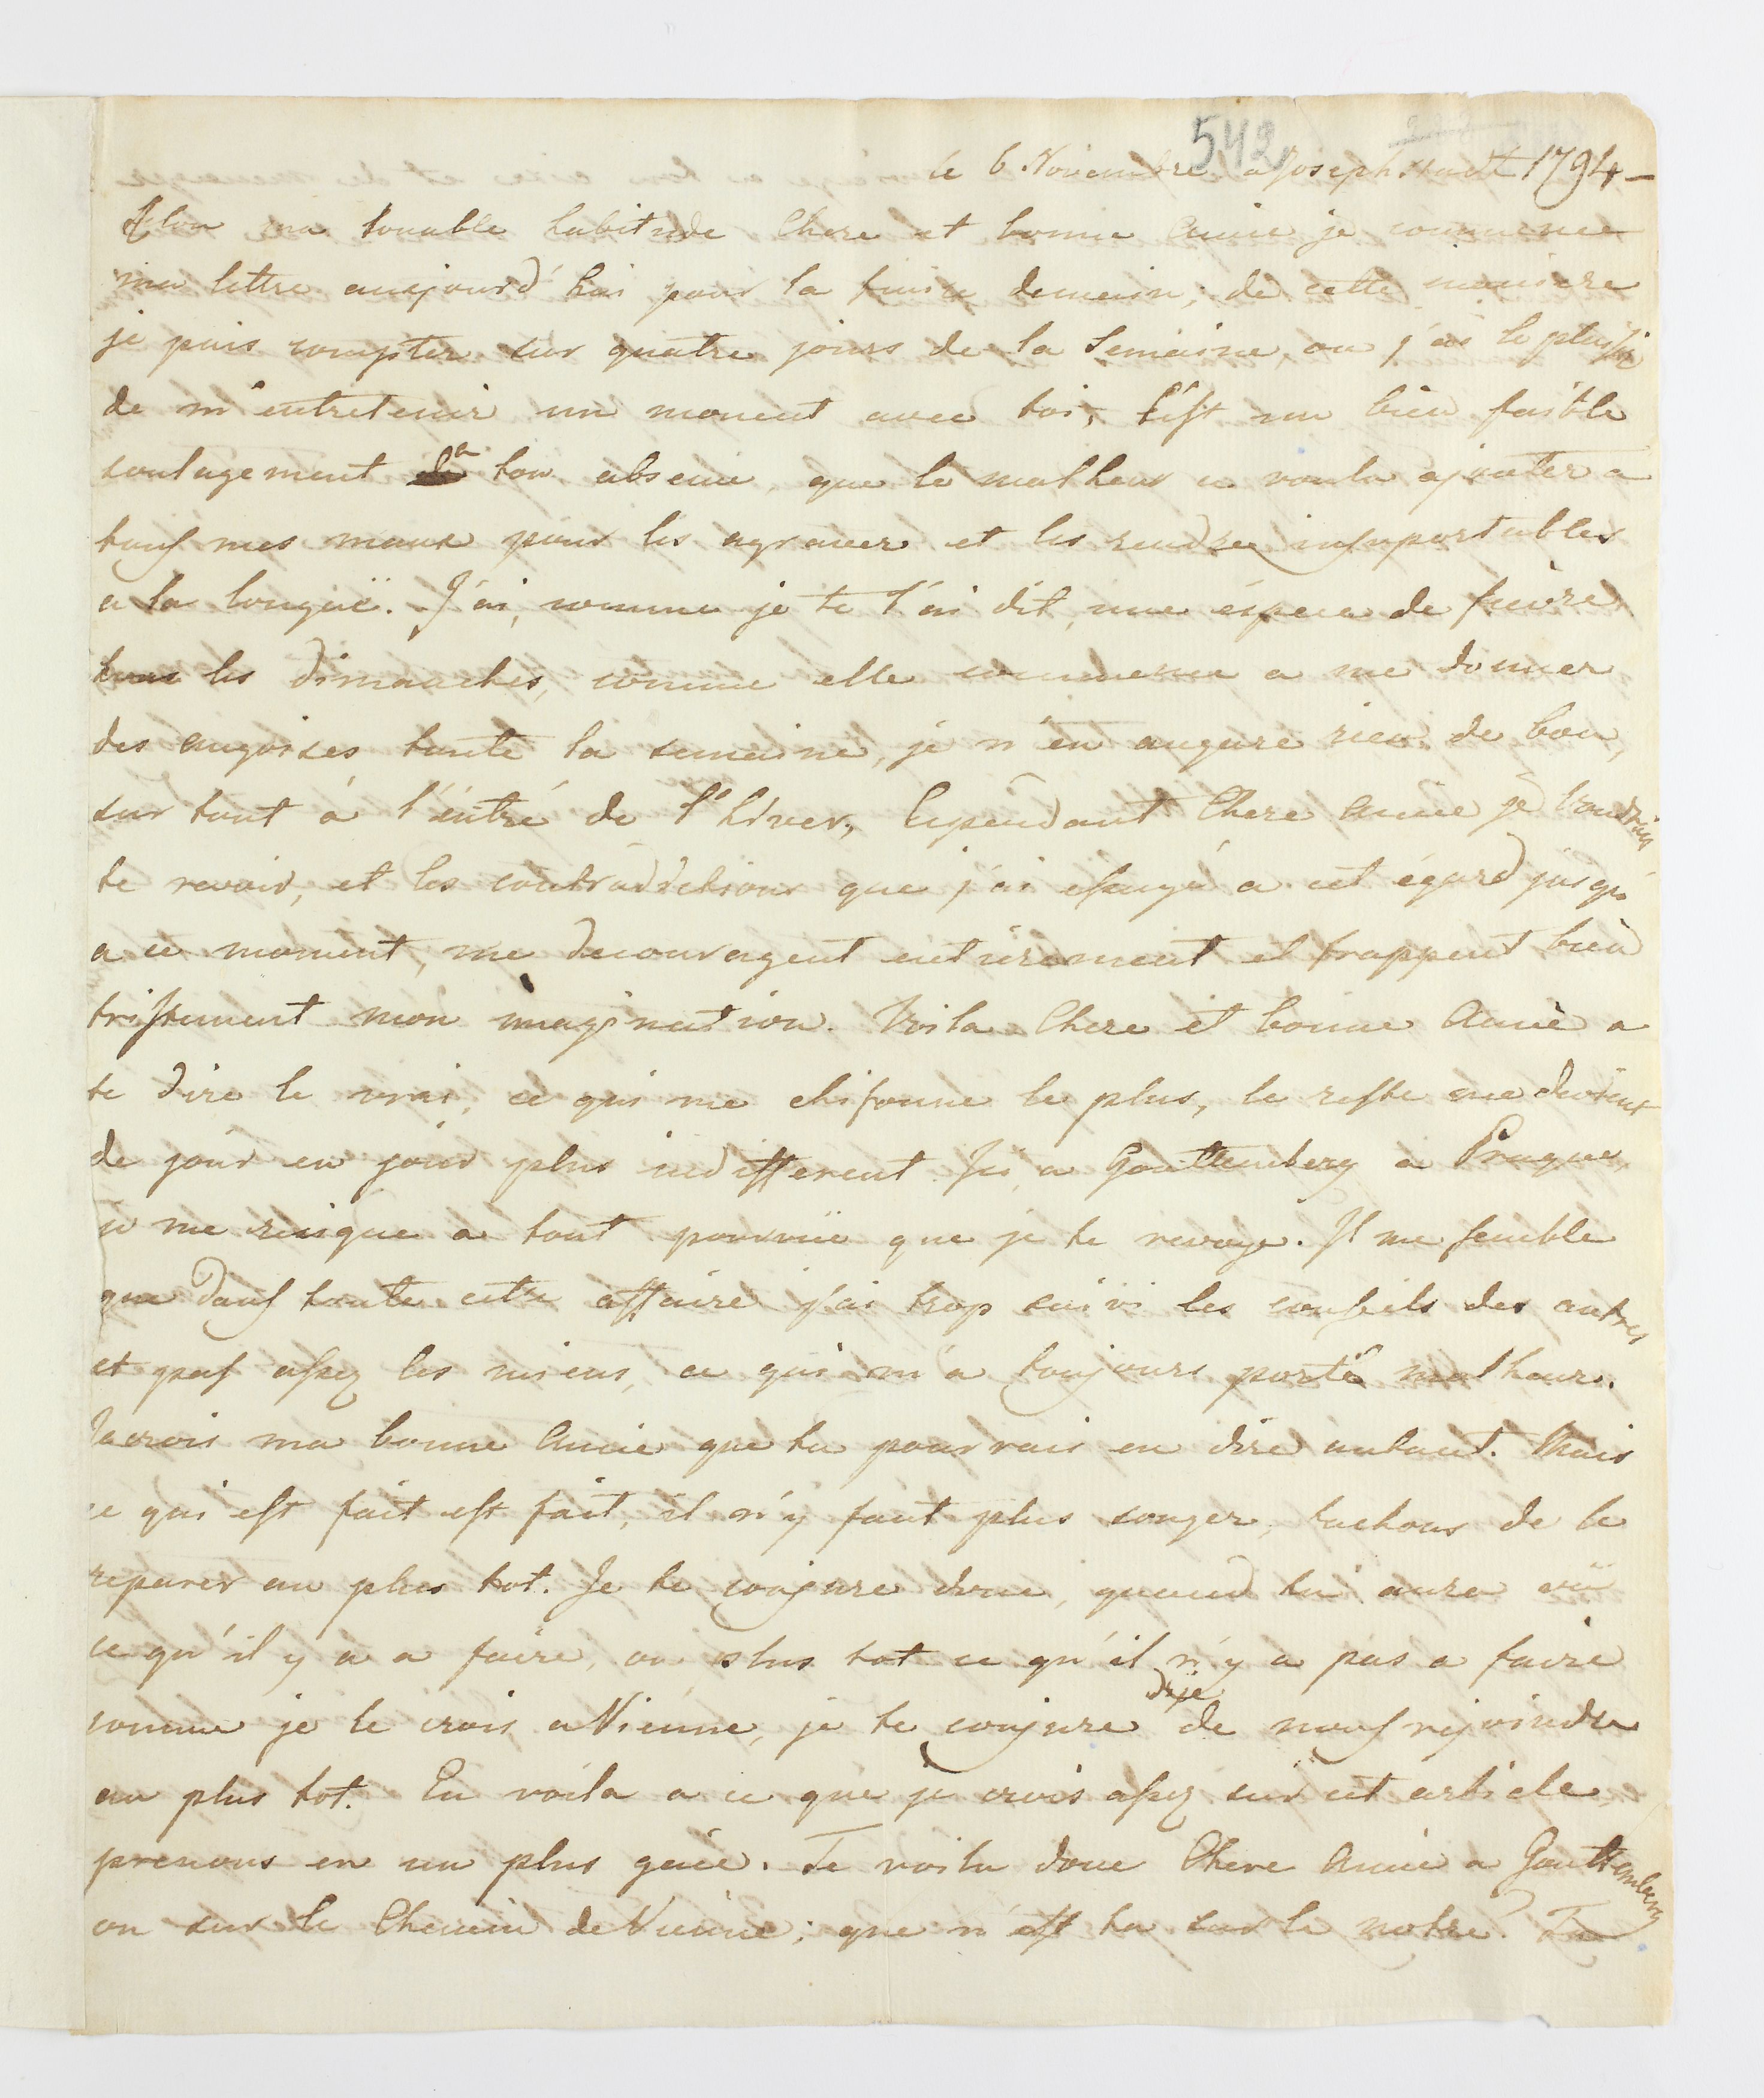 542
le 6. Novembre a Josephstadt 1794 –
Selon ma louable habitude Chere et bonne Amie je commence
ma lettre aujourd'hui pour la finir demain; de cette maniere
je puis compter sur quatre jours de la Semaine, ou j'ai le plaisir
de m'entretenir un moment avec toi, c'est un bien faible
soulagement a ton absence, que le malheur a voulu ajouter a
tous mes maux pour les agraver et les rendre insuportables
a la longuë. J'ai, comme je te l'ai dit, une éspece de fievre
tous les dimanches, comme elle commence a me donner
des angoises toute la semaine, je n'en augure rien de bon,
sur tout à l'éntré de l'hiver, Cependant Chere Amie je voudrais
te revoir, et les contradictions que j'ai essuyé a cet égard jusqu'
a ce moment, me decouragent entierement et frappent bien
tristement mon imagination. Voila Chere et bonne Amie a
te dire le vrai, ce qui me chifonne le plus, le reste me devient
de jour en jour plus indifferent. Ici, a Gouttemberg a Prague,
je me risque a tout pourvuë que je te revoye. Il me semble
que dans toute cette affaire j'ai trop suivi les conseils des autres
et pas assez les miens, ce qui m'a toujours porté malheur.
Je crois ma bonne Amie que tu pourrais en dire autant. Mais
ce qui est fait est fait, il n'y faut plus songer, tachons de le
reparer au plus tot. Je te conjure donc, quand tu aura vü
ce qu'il y a a faire, ou plus tot ce qu'il n'y a pas a faire
comme je le crois a Vienne, je te conjure dije de nous rejoindre
au plus tot. En voila a ce que je crois assez sur cet article,
prenons en un plus gaie. Te voila donc Chere Amie a Gouttemberg
ou sur le Chemin de Vienne; que n'est tu sur le notre? Tu